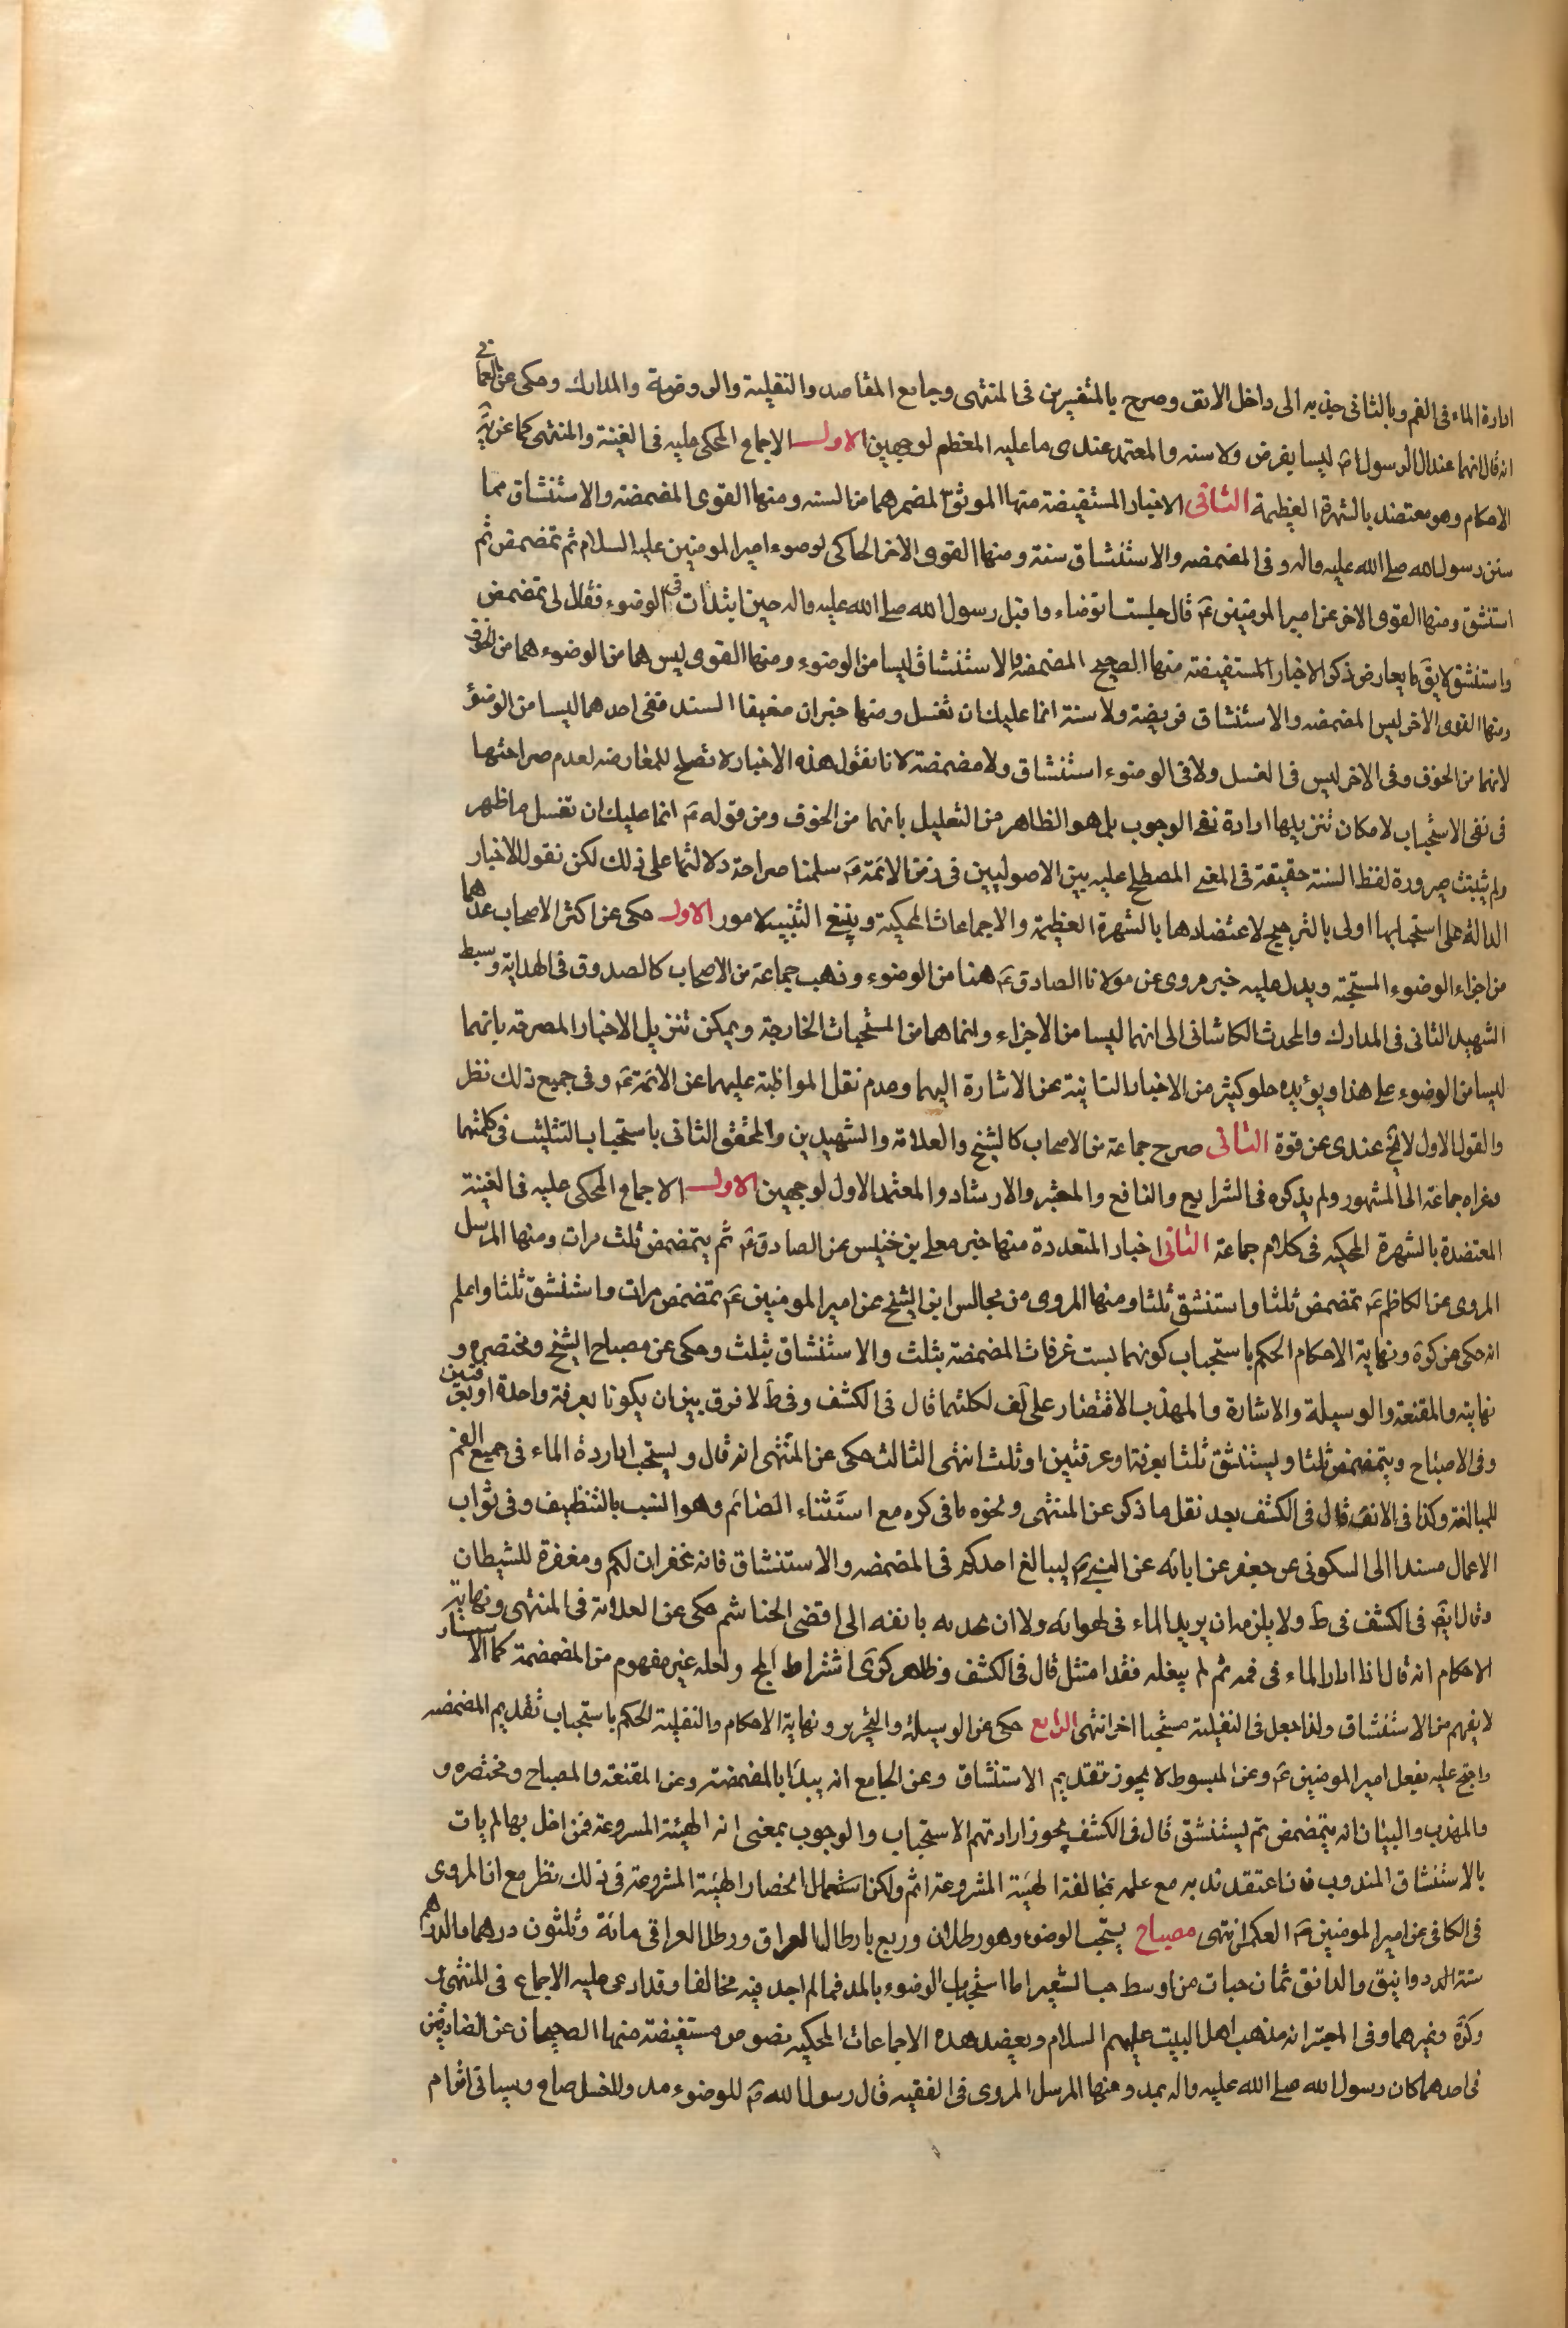 ادارة الماء فى الفم وبالثانى جذبه الى داخل الانف وصرح بالتفسيرين فى المنتهى وجامع المقاصد والنفلية والروضة والمدارك وحكى عن العمانى
انه قال انهما عند ال الرسول ص ليسا بفرض ولا سنه والمعتمد عندى ما عليه المعظم لوجهين الاول الاجماع المحكى عليه فى الغينة والمنتهى كما عن يه
الاحكام وهو معتضد بالشهرة العظيمة الثانى الاخبار المستفيضة منها الموثق المضمر هما من السنه ومنها القوى المضمضة والاستنشاق مما
سنن رسول الله صلى الله عليه واله وفى المضمضه والاستنشاق سنة ومنها القوى الاخر الحاكى لوضوء امير المومنين عليه السلام ثم تمضمض ثم
استنشق ومنها القوى الاخر عن امير المومنين ع قال جلست اتوضاء واقبل رسول الله صلى الله عليه واله حين ابتدات فى الوضوء فقال لى تمضمض
واستنشق لا يق يعارض ذكر الاخبار المستفيضة منها الصحيح المضمضة والاستنشاق ليسا من الوضوء ومنها القوى ليس هما من الوضوء هما من الجوف
ومنها القوى الاخر ليس المضمضه والاستنشاق فريضة ولا سنة انما عليك ان تغسل ومنها خبران ضعيفا السند ففى احدهما ليسا من الوضوء
لانهما من الجوف وفى الاخر ليس فى الغسل ولا فى الوضوء استنشاق ولا مضمضة لانا نقول هذه الاخبار لا تصلح للمعارضه لعدم صراحتها
فى نفى الاستحباب لامكان تنزيلها ارادة نفى الوجوب بل هو الظاهر من التعليل بانهما من الجوف ومن قوله ع انما عليك ان تغسل ما ظهر
ولم يثبت صيرورة لفظ السنة حقيقة فى المعنى المصطلح عليه بين الاصوليين فى زمن الائمة ع سلمنا صراحة دلالتها على ذلك لكن نقول الاخبار
الدالة على استحبابها اولى بالترجيح لاعتضادها بالشهرة العظيمة والاجماعات المحكية وينبغ التنبيه لامور الاول حكى عن اكثر الاصحاب عدهما
من اجزاء الوضوء المستحبة ويدل عليه خبر مروى عن مولانا الصادق ع هنا من الوضوء وذهب جماعة من الاصحاب كالصدوق فى الهداية وسبط
الشهيد الثانى فى المدارك والمحدث الكاشانى الى انهما ليسا من الاجزاء وانما هما من المستحبات الخارجة ويمكن تنزيل الاخبار المصرحه بانهما
ليسا من الوضوء على هذا ويؤيده خلو كثير من الاخبار التانية عن الاشارة اليهما وعدم نقل المواظبة عليهما عن الائمة ع وفى جميع ذلك نظر
والقول الاول لا يخ عندى عن قوة الثانى صرح جماعة من الاصحاب كالشيخ والعلامة والشهيدين والمحقق الثانى باستحباب التثليث فى كلتيهما
وعزاه جماعة الى المشهور ولم يذكره فى الشرايع والنافع والمعتبر والارشاد والمعتمد الاول لوجهين الاول الاجماع المحكى عليه فى الغينة
المعتضدة بالشهرة المحكيه فى كلام جماعة الثانى اخبار المتعددة منها خبر معلى بن خنيس عن الصادق ع ثم يتمضمض ثلث مرات ومنها المرسل
المروى عن الكاظم ع تمضمض ثلثا واستنشق ثلثا ومنها المروى من مجالس ابن الشيخ عن امير المومنين ع تمضمض مرات واستنشق ثلثا واعلم
انه حكى عن كرة ونهاية الاحكام الحكم باستحباب كونهما بست غرفات المضمضة بثلث والاستنشاق بثلث وحكى عن مصباح الشيخ ومختصره و
نهايته والمقنعة والوسيلة والاشارة والمهذب الاقتصار على كف لكلتيهما قال فى الكشف وفى ط لا فرق بين ان يكونا بغرفة واحدة او بغرفتين
وفى الاصباح ويتمضمض ثلثا ويستنشق ثلثا بغرفة او غرفتين او ثلث انتهى الثالث حكى عن المنتهى انه قال ويستحب ادارة الماء فى جميع الفم
للمبالغة وكذا فى الانف قال فى الكشف بعد نقل ما ذكر عن المنتهى ونحوه ما فى كره مع استثناء الصائم وهو انسب بالتنظيف وفى ثواب
الاعمال مسندا الى السكونى عن جعفر عن ابائه عن النبى ص ليبالغ احدكم فى المضمضه والاستنشاق فانه غفران لكم ومغفرة للشيطان
وقال ايض فى الكشف فى ط ولا يلزم ان يريد الماء فى لهواته ولا ان يجذبه بانفه الى اقصى الخناشم حكى عن العلامة فى المنتهى ونهاية
الاحكام انه قال اذا ادار الماء فى فمه ثم لم يبغله فقد امتثل قال فى الكشف وظاهر كرى اشتراط المج ولعله غير مفهوم من المضمضة كما الاستنثار
لا يفهم من الاستنشاق ولذا جعل فى النفلية مستحبا اخر انتهى الرابع حكى عن الوسيلة والتحرير ونهاية الاحكام والنفلية الحكم باستحباب تقديم المضمضه
واحتج عليه بفعل امير المومنين ع وعن المبسوط لا يجوز تقديم الاستنشاق وعن الجامع انه يبدا بالمضمضة وعن المقنعة والمصباح ومختصره و
والمهذب والبيان انه يتمضمض ثم يستنشق قال فى الكشف يجوز ارادتهم الاستحباب والوجوب بمعنى انه الهيئة المشروعة فمن اخل بها لم يات
بالاستنشاق المندوب فان اعتقد ندبه مع علمه بمخالفة الهيئة المشروعة اثم ولكن انحصار الهيئة المشروعة فى ذلك نظر مع ان المروى
فى الكافى عن امير المومنين ع العكس انتهى مصباح يستحب الوضوء وهو رطلان وربع بارطال العراق ورطل العراقى مائة وثلثون درهما والدرهم
ستة الد دوانيق والدانق ثمان حبات من اوسط حب الشعير اما استحباب الوضوء بالمد فمما لم اجد فيه مخالفا وقد ادعى عليه الاجماع فى المنتهى
وكرة وغيرهما وفى المعتبر انه مذهب اهل البيت عليهم السلام ويعضد هده الاجماعات المحكيه نصوص مستفيضة منها الصحيحان عن الصادقين
فى احدهما كان رسول الله صلى الله عليه واله بمد ومنها المرسل المروى فى الفقيه قال رسول الله ص للوضوء مد وللغسل صاع وسياتى اقوام